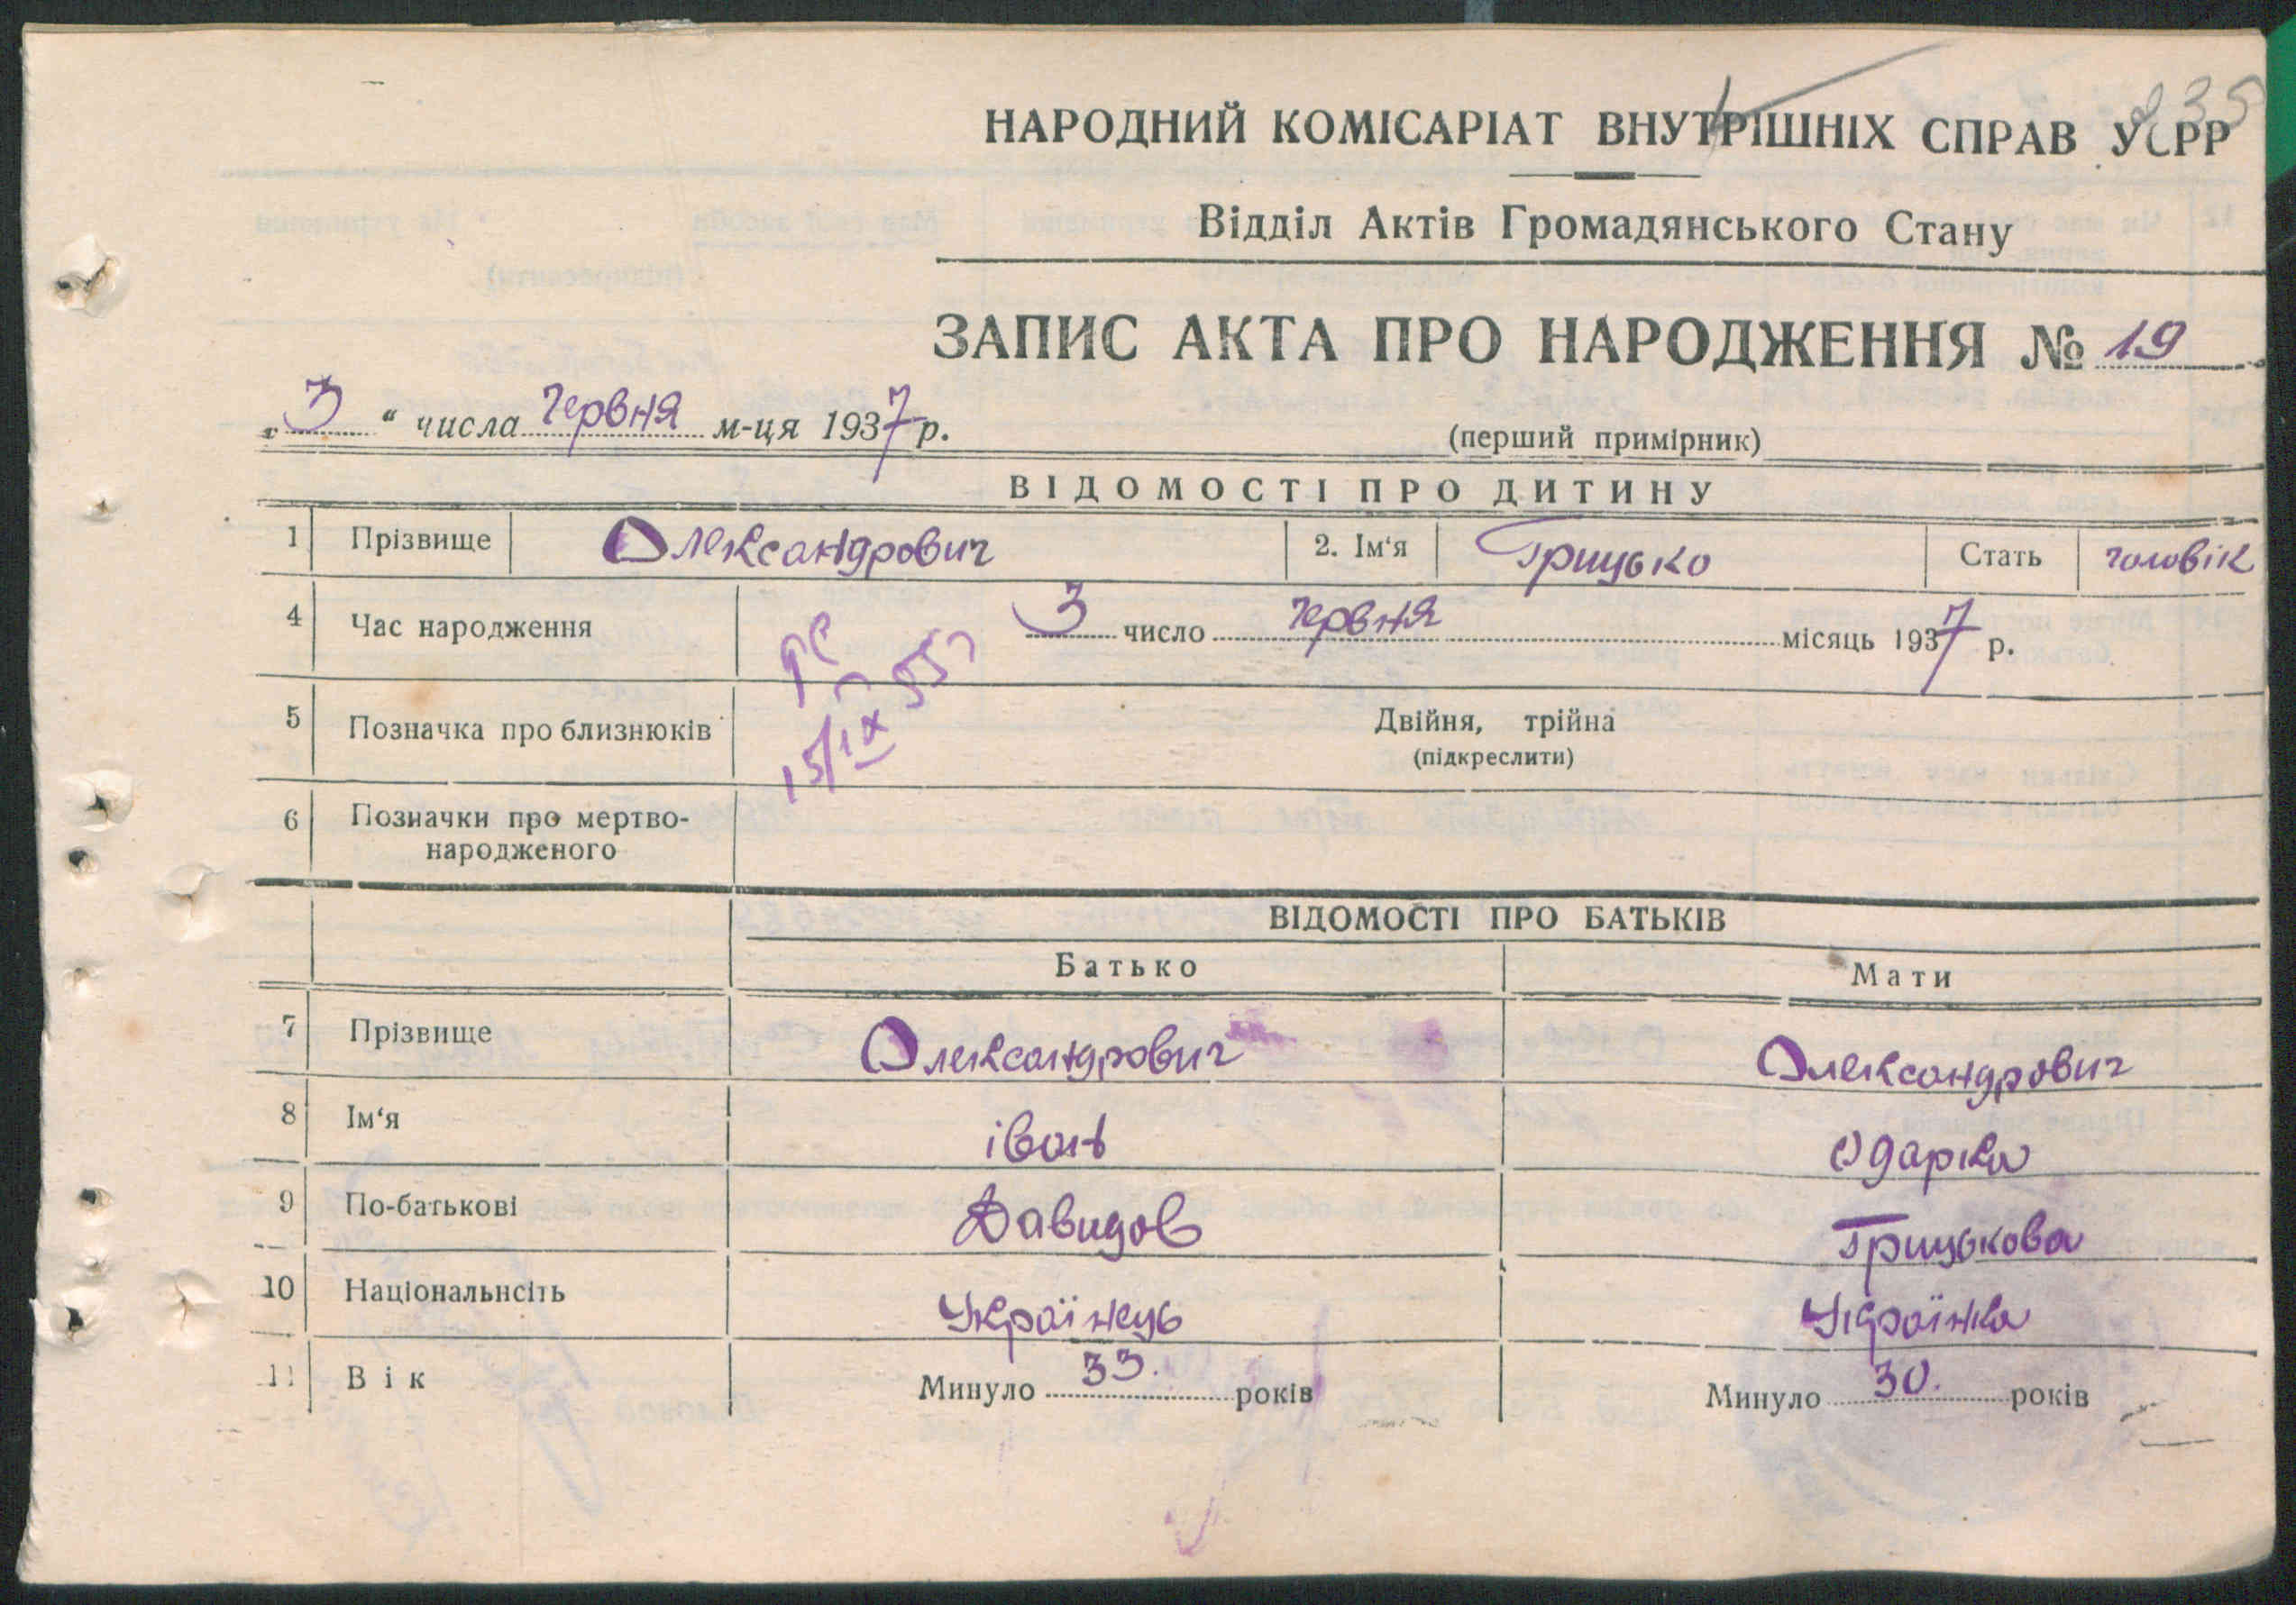 235
НАРОДНИЙ КОМІСАРІАТ ВНУТРІШНІХ СПРАВ УСРР
Відділ Актів Громадянського Стану
ЗАПИС АКТА ПРО НАРОДЖЕННЯ № 19
„3“ числа Червня м-ця 1937 р.
(перший примірник)
ВІДОМОСТІ ПРО ДИТИНУ
1 Прізвище Олександрович 2. Ім'я Грицько Стать чоловік
4 Час народження 3 число Червня місяць 1937 р.
15/IX 55
5 Позначка про близнюків Двійня, трійна
(підкреслити)
6 Позначки про мертво-
народженого
ВІДОМОСТІ ПРО БАТЬКІВ
Батько Мати
7 Прізвище Олександрович Олександрович
8 Ім'я іван Одарка
9 По-батькові Давидов Грицькова
10 Національнсіть Українець Українка
11 Вік Минуло 33. років Минуло 30. років